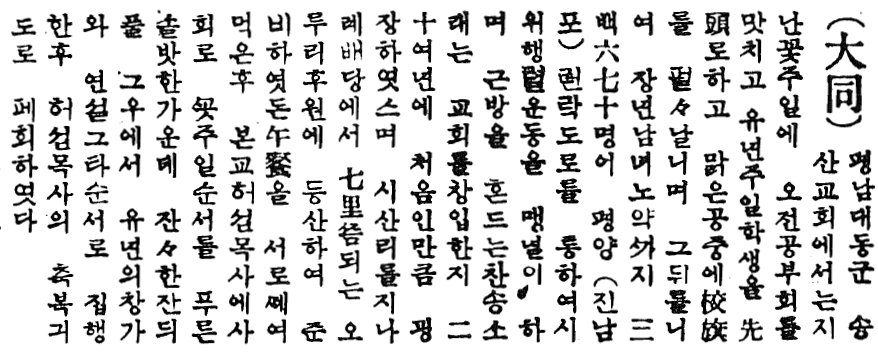 (大同)
평남대동군 송
산교회에서는지
난꽃주일에 오전공부회를
맛치고 유년주일학생을 先
頭로하고 맑은공중에校旗
를 펄々날니며 그뒤를니
여 장년남녀노약ᄭᅡ지 三
백六七十명이 평양(진남
포)련락도로를 통하여시
위행렬운동을 맹널이 하
며 근방을 흔드는찬송소
래는 교회를창입한지 二
十여년에 처음인만큼 굉
장하엿스며 시산리를지나
레배당에서 七里씀되는 오
루리후원에 등산하여 준
비하엿든午餐을 서로ᄶᅦ여
먹은후 본교허섬목사에사
회로 ᄭᅩᆺ주일순서를 푸른
솔밧한가운데 잔々한잔듸
풀 그우에서 유년의창가
와 연설그타순서로 집행
한후 허섬목사의 축복긔
도로 폐회하엿다